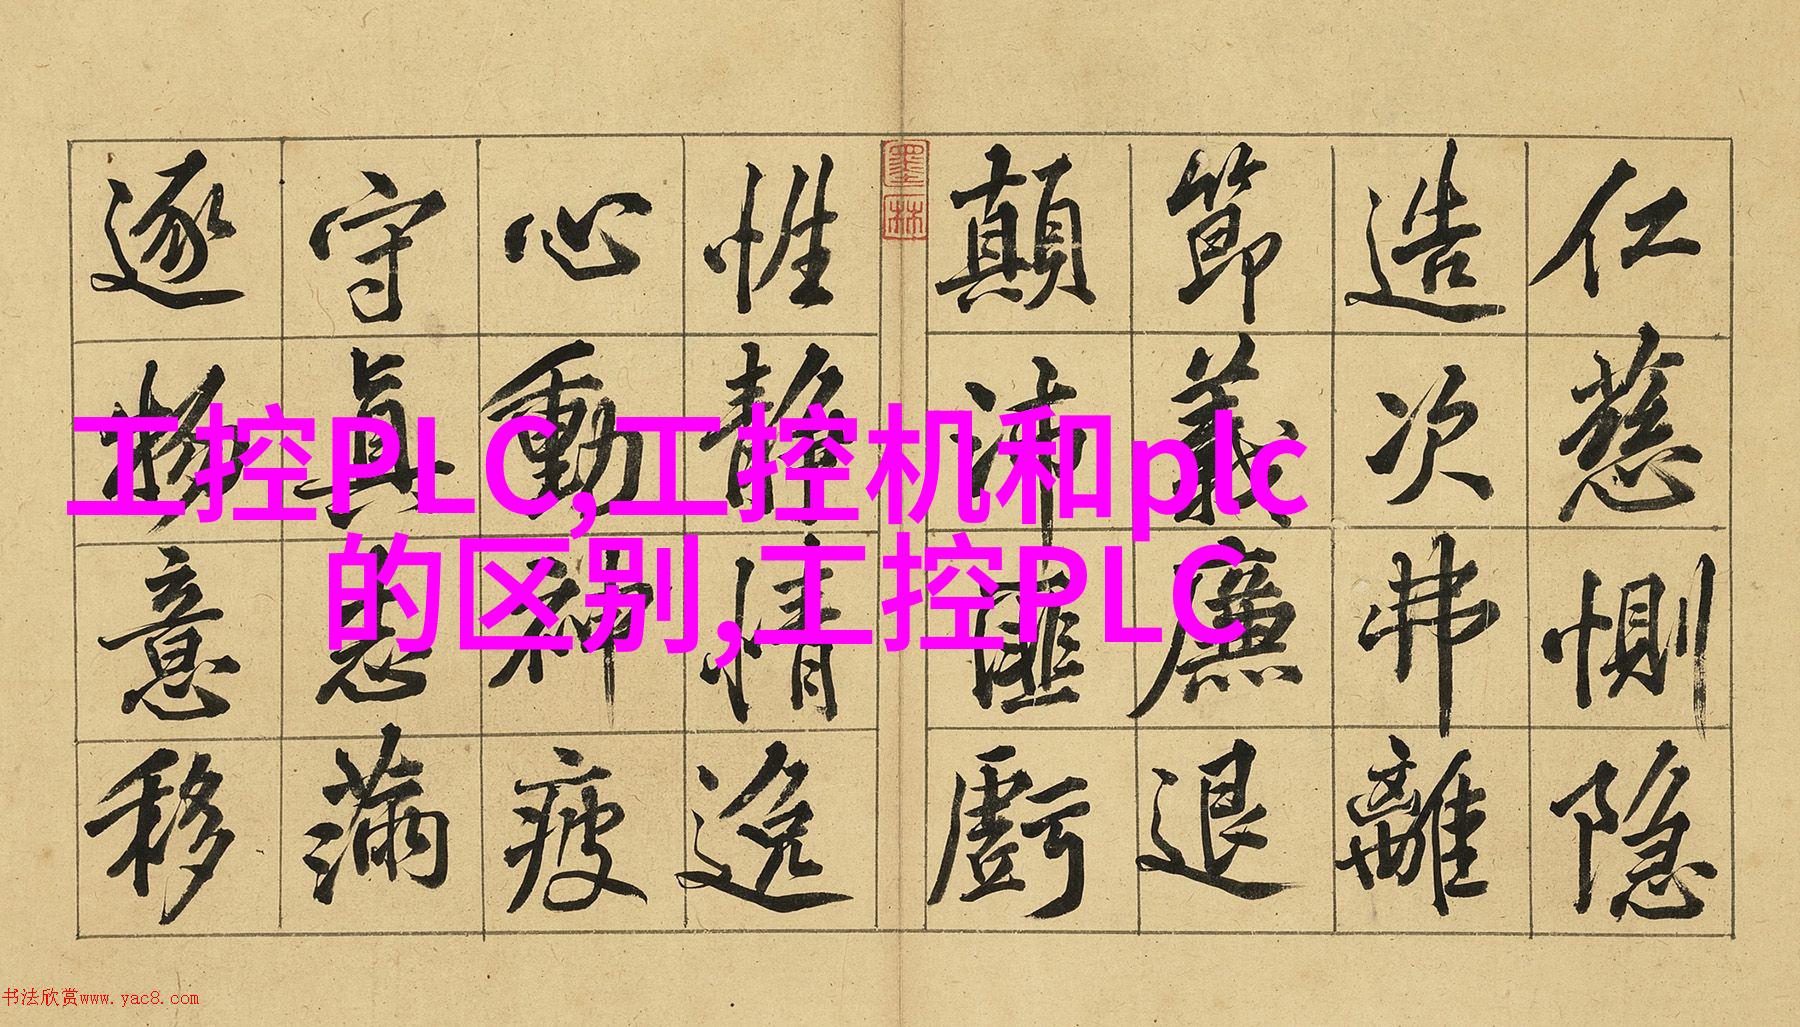 仁慈惻隐
造次弗離
節義廉退
顛沛匪虧
墨林
性静情逸
心動神疲
守真志滿
逐物意移
工控PLC,工控机和plc
的区别,工控PLC
书法欣赏www.yac8.com